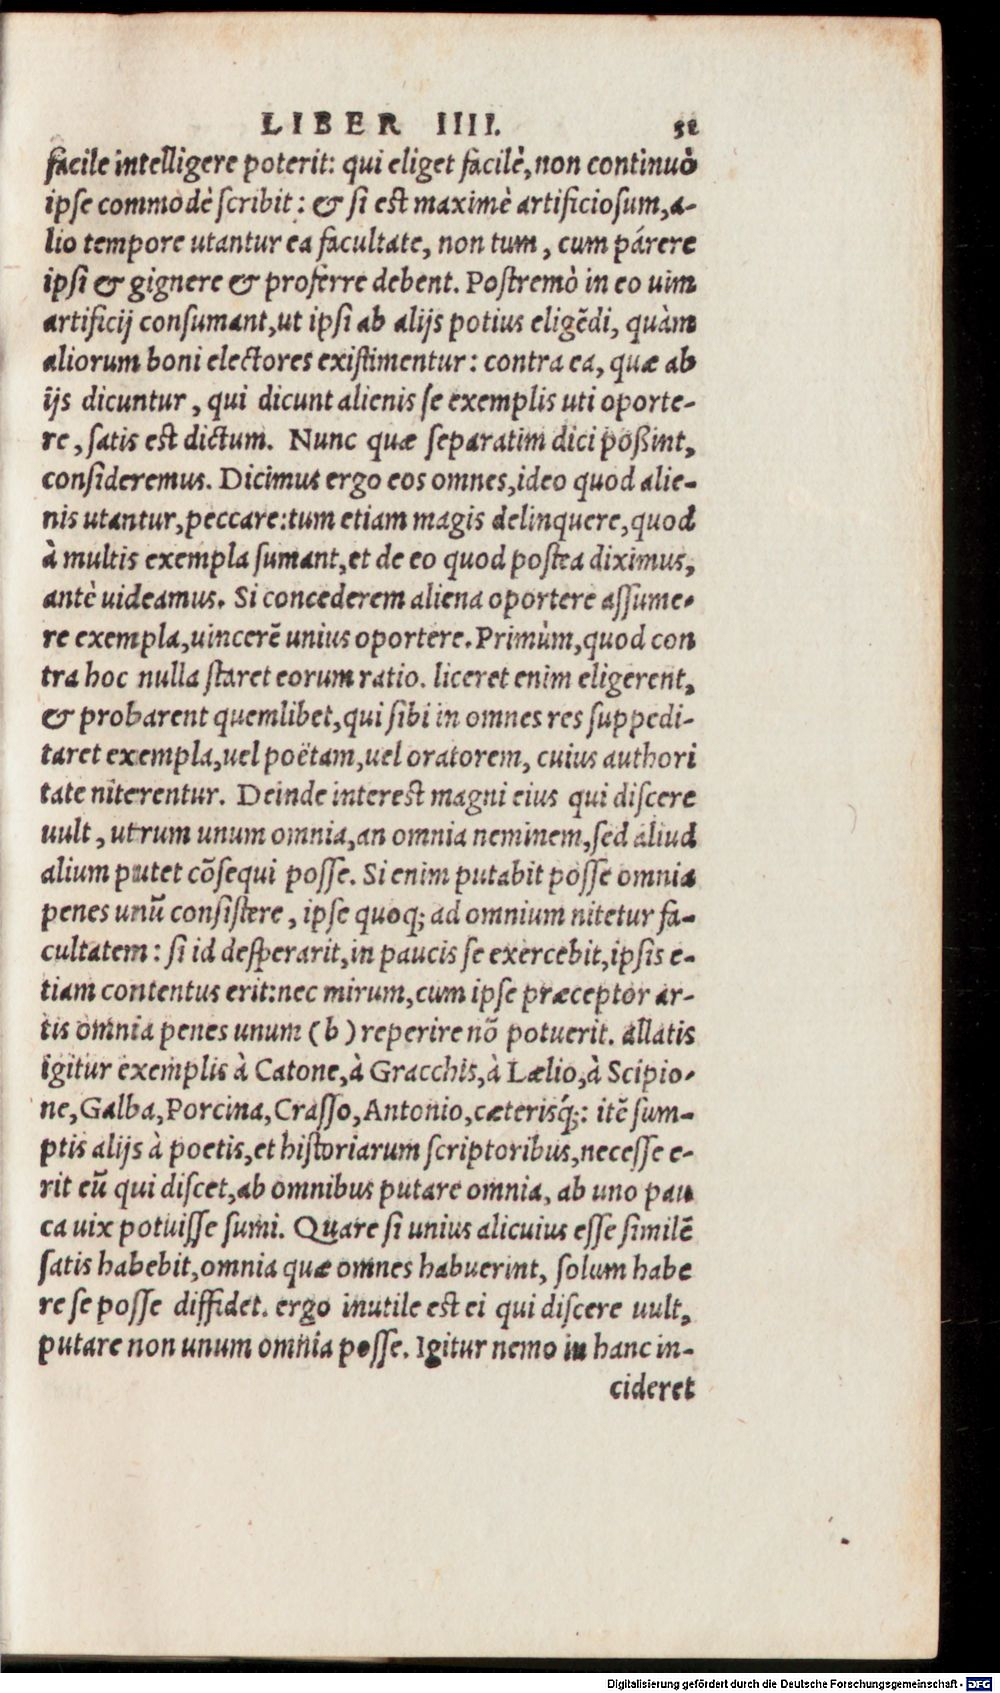 LIBER IIII. 51
facile intelligere poterit: qui eliget facilè, non continuò
ipse commodè scribit: & si est maximè artificiosum, a-
lio tempore utantur ea facultate, non tum, cum párere
ipsi & gignere & proferre debent. Postremò in eo uim
artificij consumant, ut ipsi ab alijs potius eligẽdi, quàm
aliorum boni electores existimentur: contra ea, quæ ab
ijs dicuntur, qui dicunt alienis se exemplis uti oporte-
re, satis est dictum. Nunc quæ separatim dici poßint,
consideremus. Dicimus ergo eos omnes, ideo quod alie-
nis utantur, peccare: tum etiam magis delinquere, quod
à multis exempla sumant, et de eo quod postea diximus,
antè uideamus. Si concederem aliena oportere assume-
re exempla, uincerẽ unius oportere. Primùm, quod con
tra hoc nulla staret eorum ratio. liceret enim eligerent,
& probarent quemlibet, qui sibi in omnes res suppedi-
taret exempla, uel poëtam, uel oratorem, cuius authori
tate niterentur. Deinde interest magni eius qui discere
uult, utrum unum omnia, an omnia neminem, sed aliud
alium putet cõsequi posse. Si enim putabit posse omnia
penes unũ consistere, ipse quoq; ad omnium nitetur fa-
cultatem: si id desperarit, in paucis se exercebit, ipsis e-
tiam contentus erit: nec mirum, cum ipse præceptor ar-
tis omnia penes unum (b) reperire nõ potuerit. allatis
igitur exemplis à Catone, à Gracchis, à Lælio, à Scipio-
ne, Galba, Porcina, Crasso, Antonio, cæterisq́;: itẽ sum-
ptis alijs à poetis, et historiarum scriptoribus, necesse e-
rit eũ qui discet, ab omnibus putare omnia, ab uno pau
ca uix potuisse sumi. Quare si unius alicuius esse similẽ
satis habebit, omnia quæ omnes habuerint, solum habe
re se posse diffidet. ergo inutile est ei qui discere uult,
putare non unum omnia posse. Igitur nemo in hanc in-
cideret
Digitalisierung gefördert durch die Deutsche Forschungsgemeinschaft - DFG